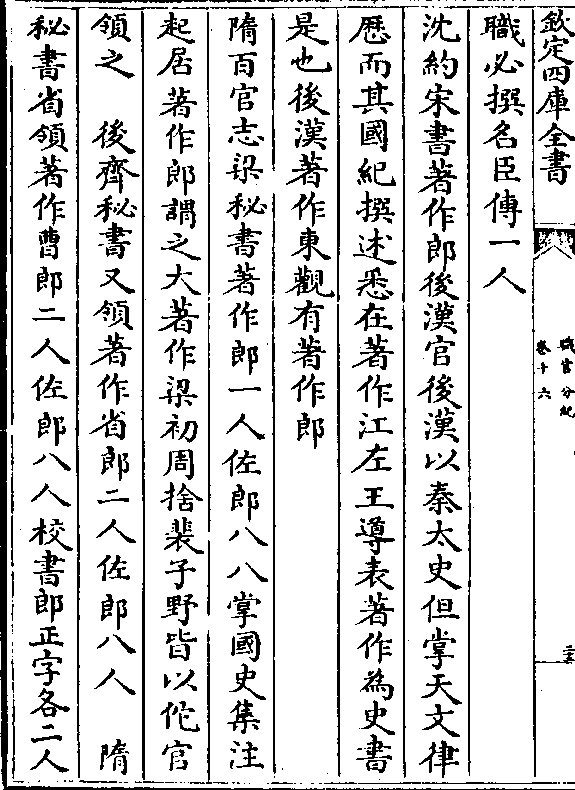 欽定四庫全書
職官分紀
卷十六
職必撰名臣傳一人
沈約宋書著作郎後漢官後漢以秦太史但掌天文律
歷而其國紀撰述悉在著作江左王導表著作為史書
是也後漢著作東觀有著作郎
隋百官志梁秘書著作郎一人佐郎八八掌國史集注
起居著作郎謂之大著作梁初周捨裴子野皆以佗官
領之　後齊秘書又領著作省郎二人佐郎八人　隋
秘書省領著作曹郎二人佐郎八人校書郎正字各二人